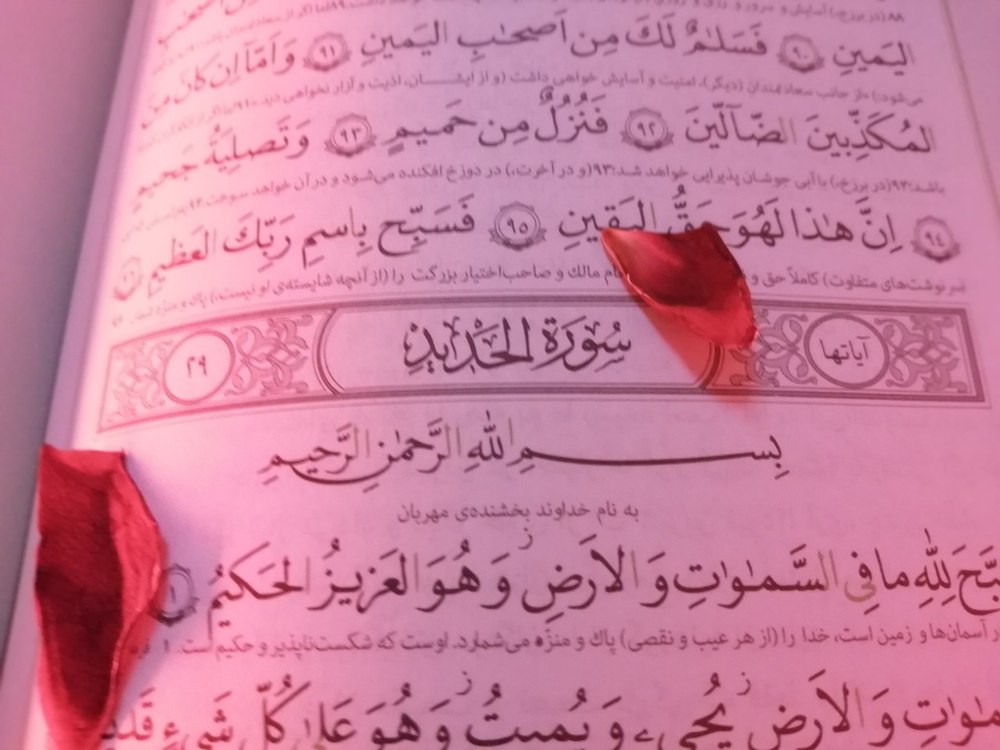 اليَمينِ ﴿٩٠﴾ فَسَلٰمٌ لَكَ مِن اَصحٰبِ اليَمينِ ﴿٩١﴾ وَ اَمّا اِن كانَ مِنَ
می‌شود:) «از جانب سعادتمندان (دیگر)، امنیت و آسایش خواهی داشت (و از ایشان، اذیت و آزار نخواهی دید.»
المُكَذِّبينَ الضّآلّينَ ﴿٩٢﴾ فَنُزُلٌ مِن حَميمٍ ﴿٩٣﴾ وَ تَصلِيَةُ جَحيمٍ
باشد؛۹۲ (در برزخ،) با آبی جوشان پذیرایی خواهد شد؛۹۳ (و در آخرت،) در دوزخ افکنده می‌شود و در آن خواهد سوخت.۹۴
﴿٩٤﴾ اِنَّ هٰذا لَهُوَ حَقُّ اليَقينِ ﴿٩٥﴾ فَسَبِّح بِاسمِ رَبِّكَ العَظيمِ ﴿٩٦﴾
سرنوشت‌های متفاوت) کاملاً حق و نام مالک و صاحب‌اختیار بزرگت را (از آنچه شایسته‌ی او نیست،) پاک و منزّه
آياتها سورَةُ الحَديدِ ٢٩
بِسمِ اللهِ الرَّحمٰنِ الرَّحيمِ
به نام خداوند بخشنده‌ی مهربان
سَبَّحَ لِلّٰهِ ما فِى السَّمٰوٰتِ وَ الاَرضِ ز وَ هُوَ العَزيزُ الحَكيمُ ﴿١﴾
در آسمان‌ها و زمین است، خدا را (از هر عیب و نقصی) پاک و منزّه می‌شمارد. اوست که شکست‌ناپذیر و حکیم است. ۱
وَ الاَرضِ ز يُحيى وَ يُميتُ ز وَ هُوَ عَلىٰ كُلِّ شَىءٍ